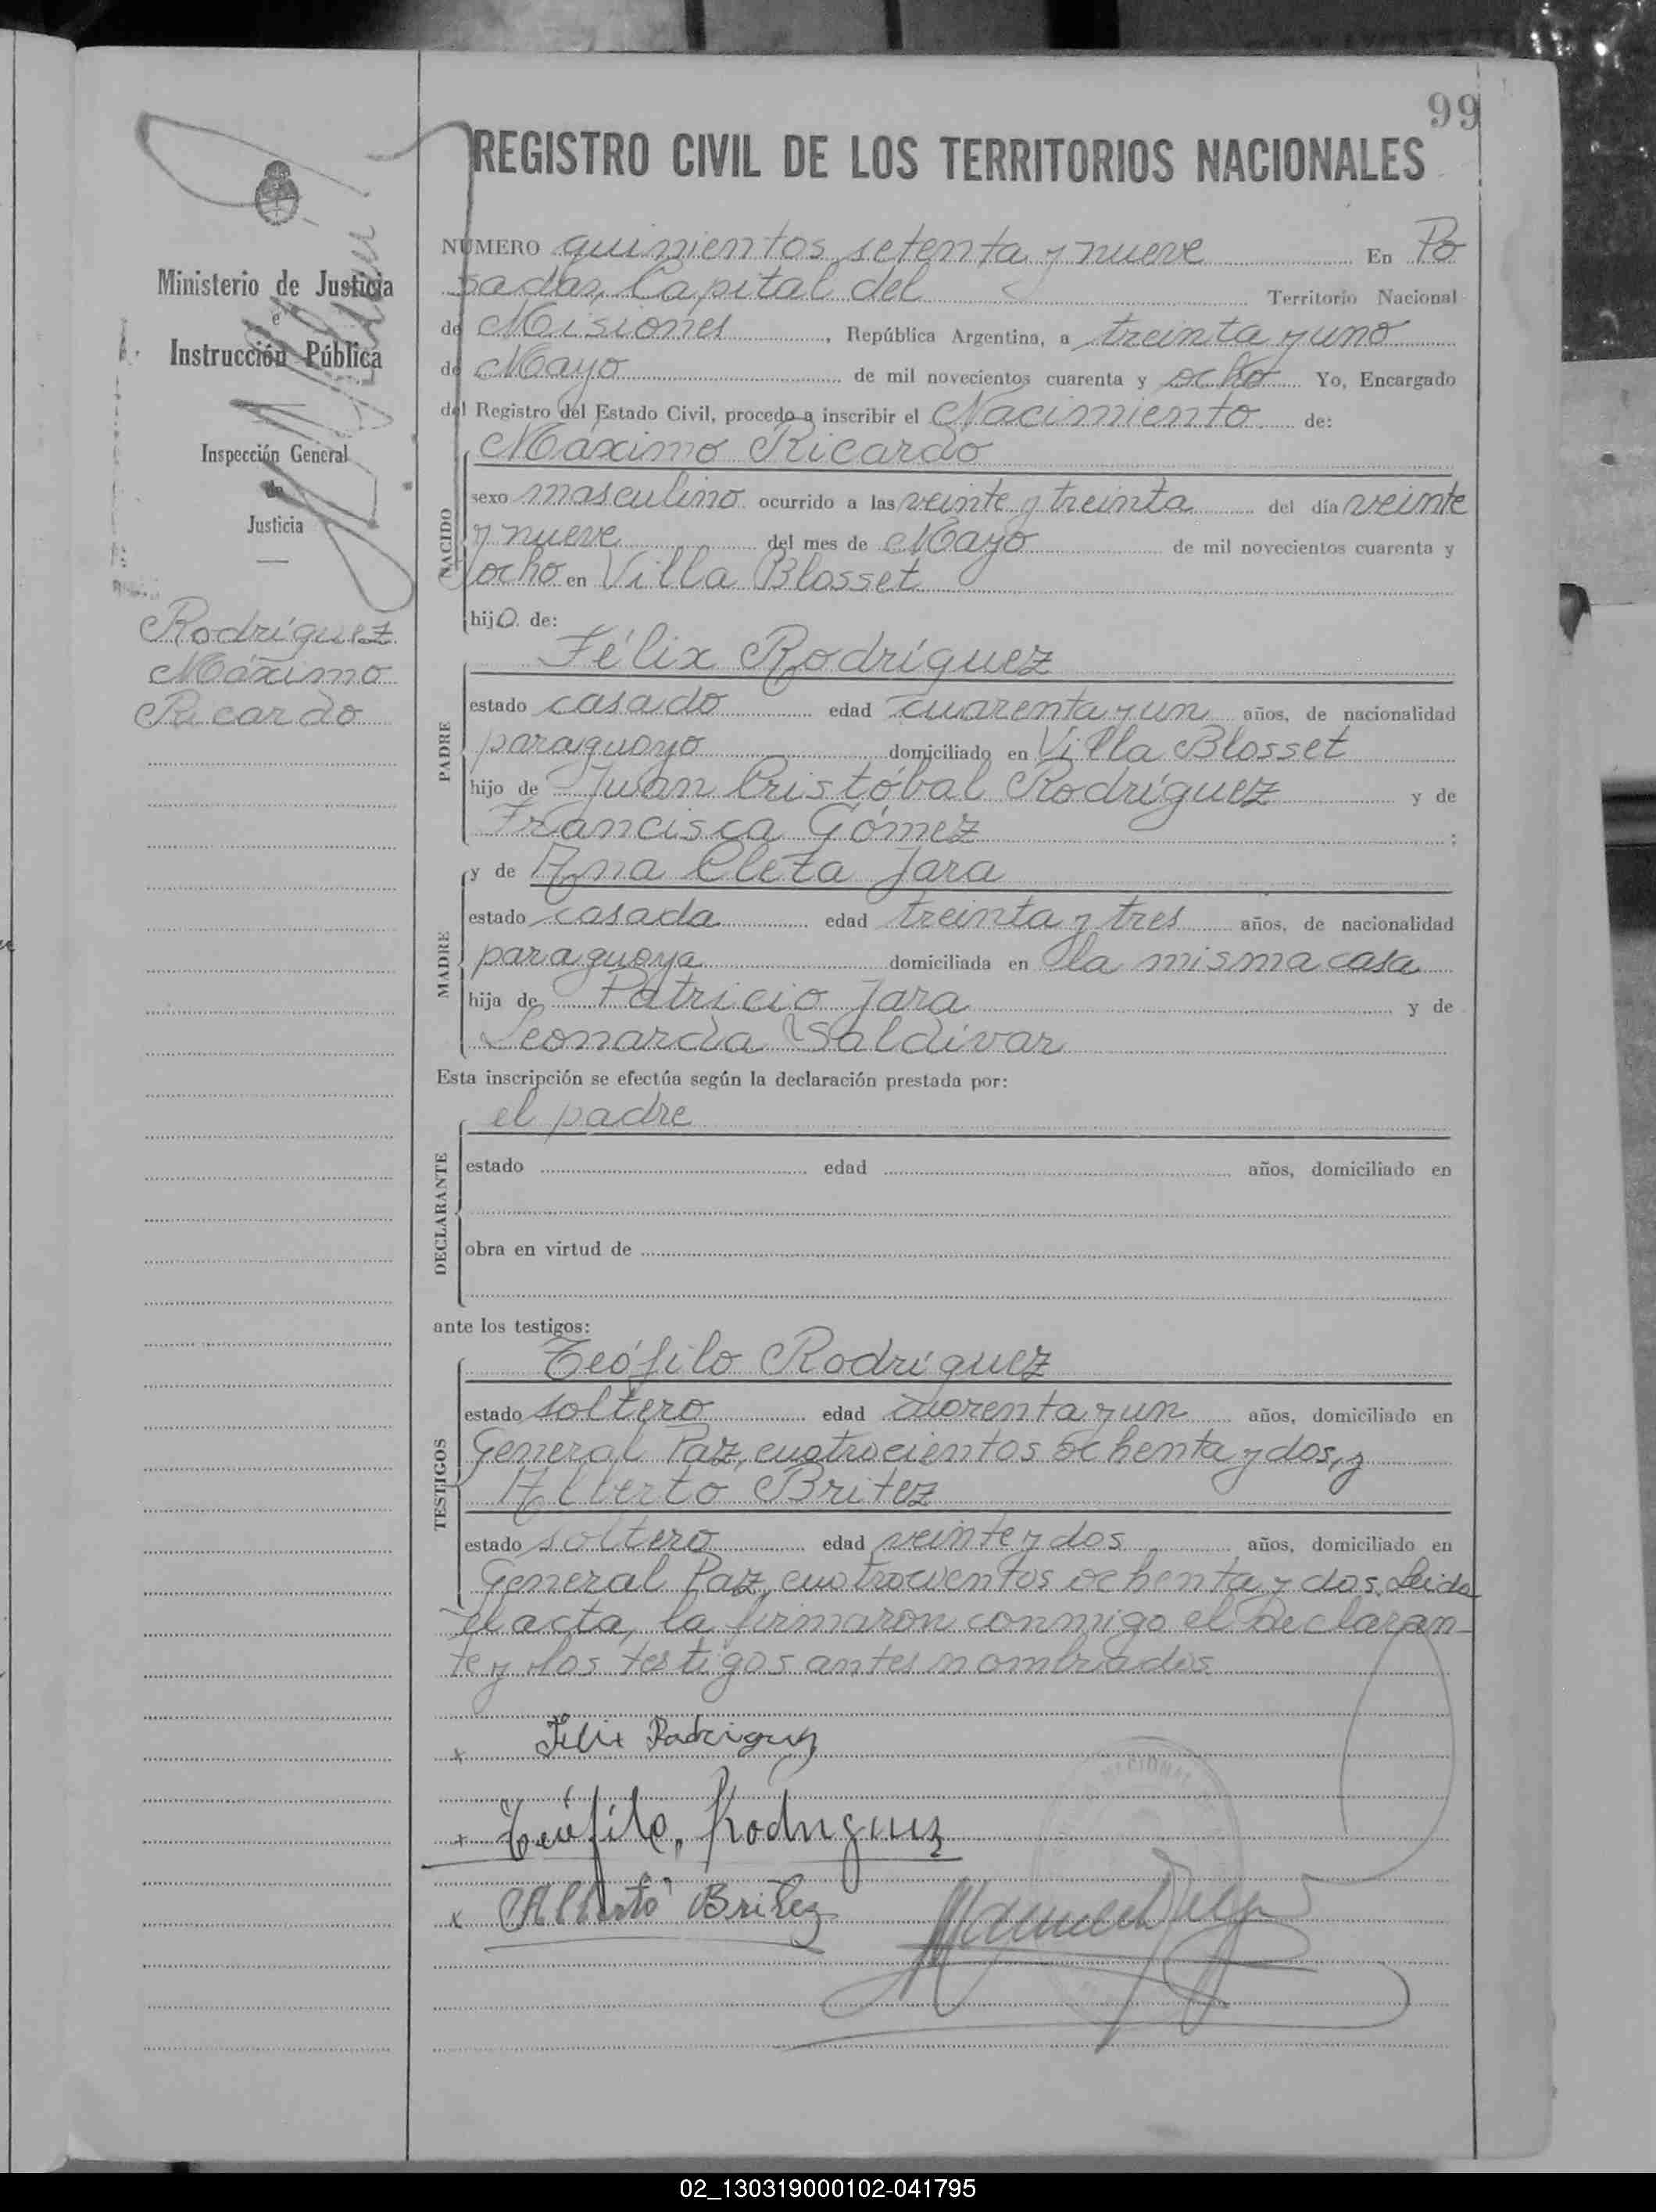 99
REGISTRO CIVIL DE LOS TERRITORIOS NACIONALES
Ministerio de Justicia
e
Instrucción Pública
Inspección General
de
Justicia
Rodríguez
Máximo
Ricardo
NÚMERO quinientos setenta y nueve En Po
sadas, Capital del Territorio Nacional
de Misiones, República Argentina, a treinta y uno
de Mayo de mil novecientos cuarenta y ocho Yo, Encargado
del Registro del Estado Civil, procedo a inscribir el Nacimiento de:
Máximo Ricardo
NACIDO
sexo masculino ocurrido a las veinte y treinta del día veinte
y nueve del mes de Mayo de mil novecientos cuarenta y
ocho en Villa Blosset
hijo de:
Félix Rodríguez
PADRE
estado casado edad cuarenta y un años, de nacionalidad
paraguayo domiciliado en Villa Blosset
hijo de Juan Cristóbal Rodríguez y de
Francisca Gómez;
y de Ana Cleta Jara
MADRE
estado casada edad treinta y tres años, de nacionalidad
paraguaya domiciliada en la misma casa
hija de Patricio Jara y de
Leonarda Saldívar
Esta inscripción se efectúa según la declaración prestada por:
el padre
DECLARANTE
estado edad años, domiciliado en
obra en virtud de
ante los testigos:
Teófilo Rodríguez
TESTIGOS
estado soltero edad cuarenta y un años, domiciliado en
General Paz, cuatrocientos ochenta y dos, y
Alberto Britez
estado soltero edad veinte y dos años, domiciliado en
General Paz, cuatrocientos ochenta y dos. Leida
el acta, la firmaron conmigo el Declaran-
te y los testigos antes nombrados
x Felix Rodriguez
+ Teófilo, Rodriguez
x Alberto Britez
NACIONAL
02_130319000102-041795